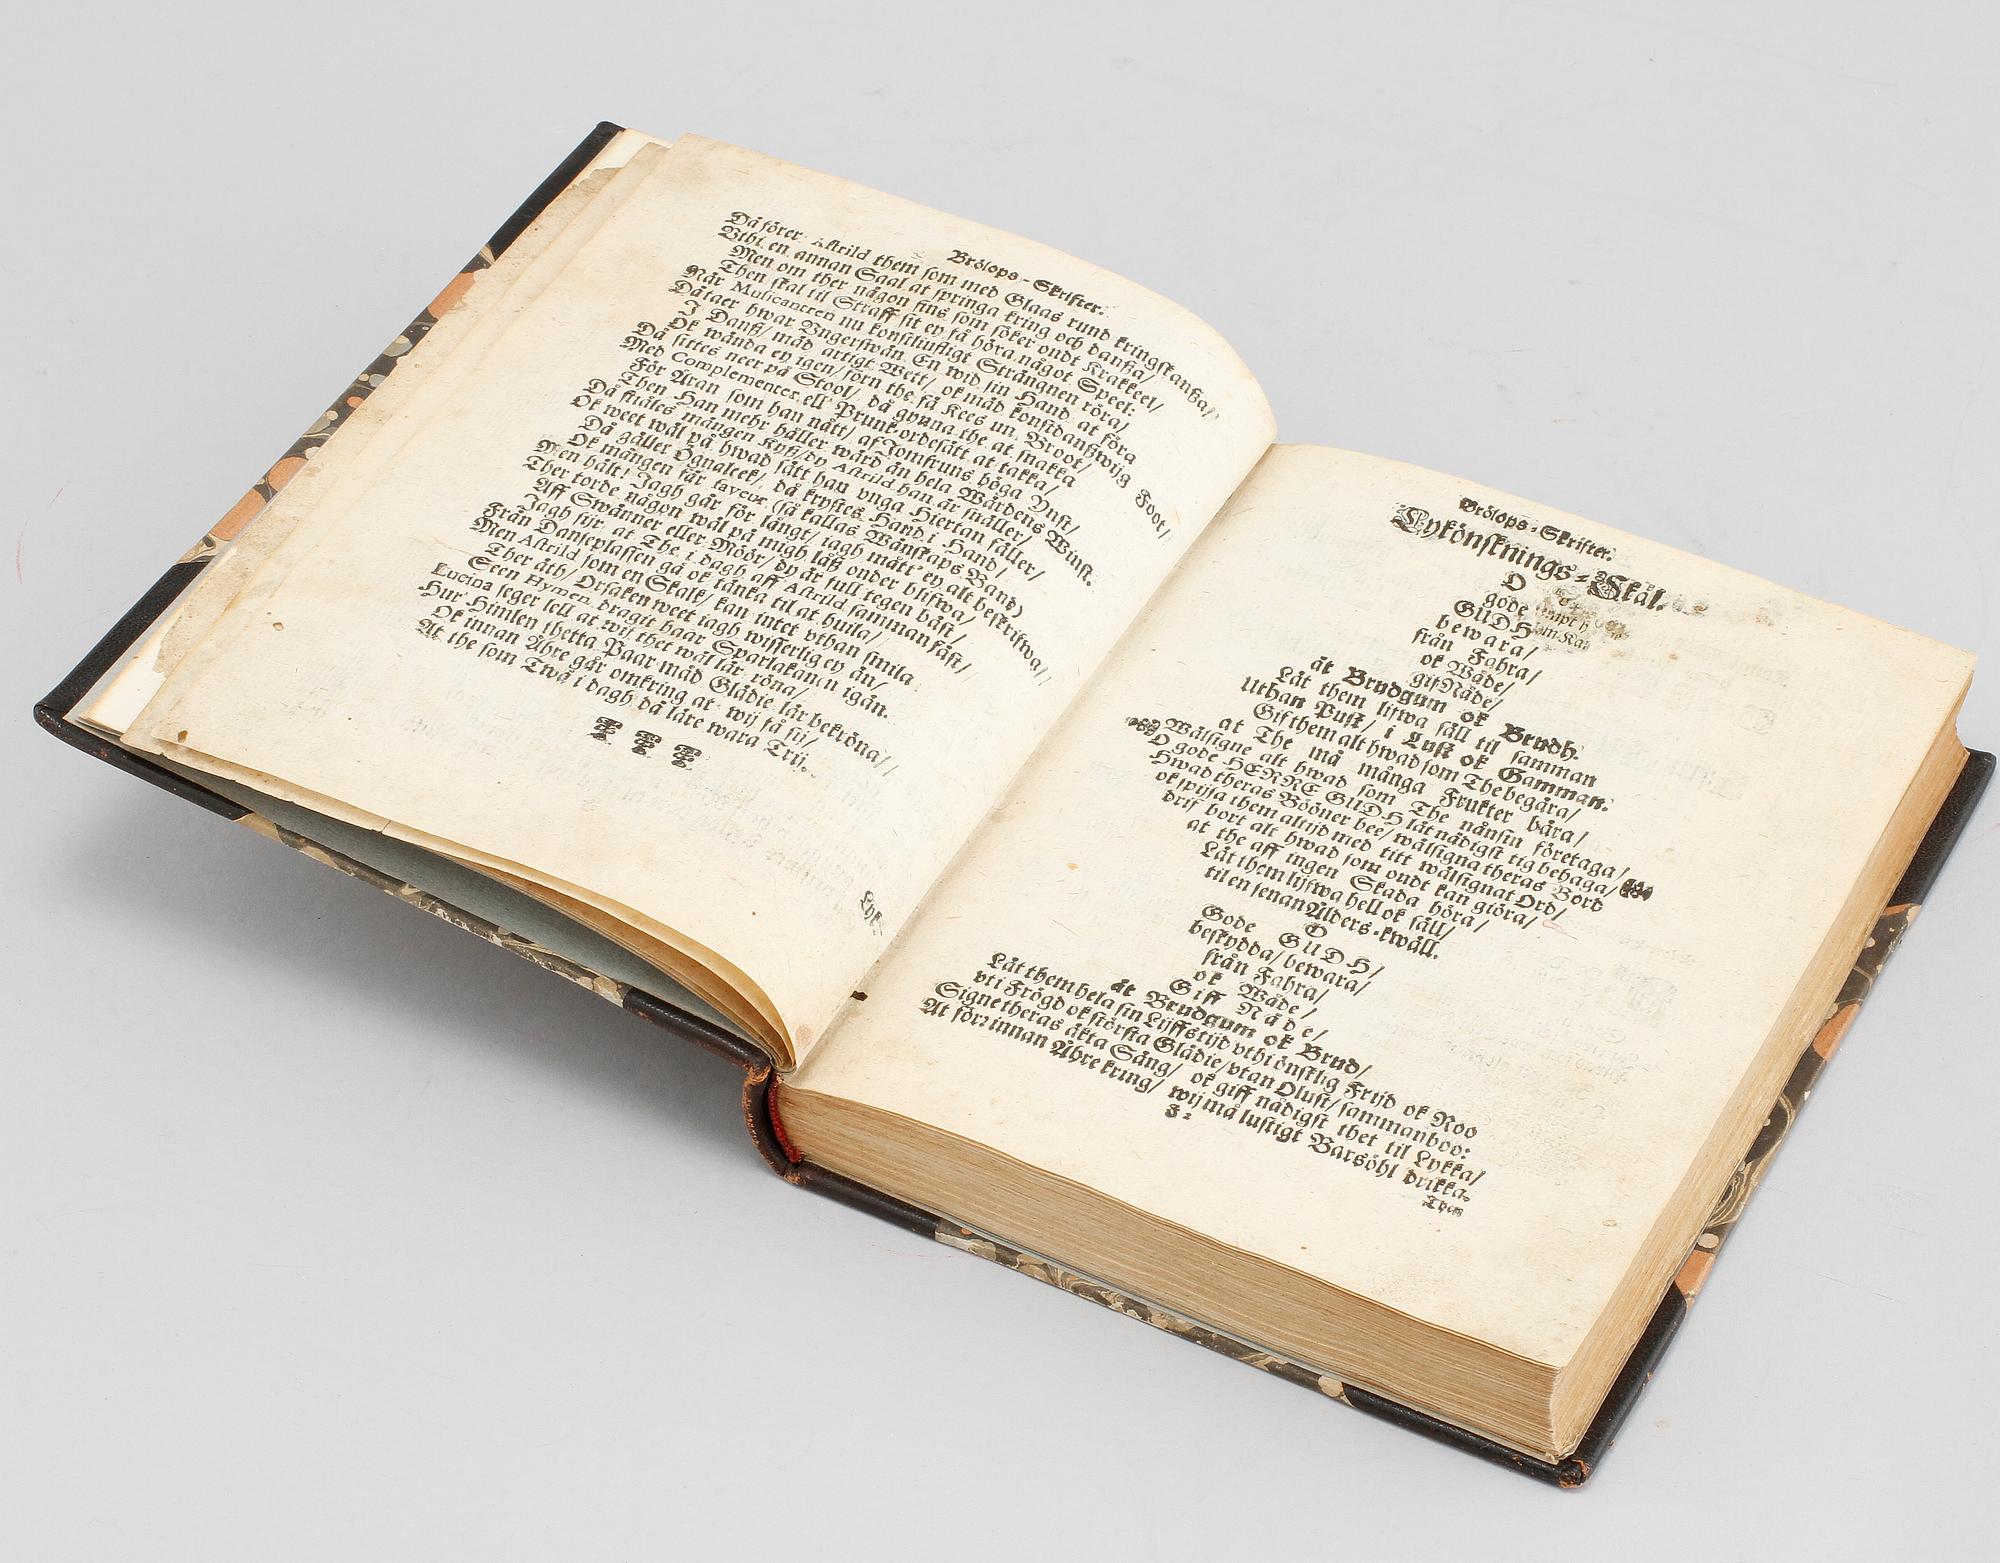 Brölops-Skrifter.
Då förer Astrild them som med Glaas rund kringskanßa/
Vthi en annan Saal at springa kring och danßa/
Men om ther någon fins som söker ondt Krakkeel/
Then skal til Straff sit ey få höra något Speel:
När Musicanten nu konstliufligt Strängnen röra/
Då taer hwar Vngerswän En wid sin Hand at föra
I Danß/ mäd artigt Wett/ ok mäd konstdanßwijg Foot/
Ok wända ey igen/ förn the få Kees un Broot/
Då sittes neer på Stool/ då gynna the at snakka
Med Complementer ell' Prunk-ordesätt at takka/
För Äran som han nått/ af Jomfruns höga Ynst/
Then Han mehr håller wärd än hela Wärdens Winst.
Då stiäles mången Kyß/ dy Astrild han är snäller/
Ok weet wäl på hwad sätt han vnga Hiertan fäller/
Då gäller Ögnaleek/ då krystes Hand i Hand/
Ok mången får faveur (så kallas Wänskaps Band)
Men hålt! Jagh går för långt/ iagh mått' ey alt beskrifwa/
Ther torde någon wäl på migh låß onder blifwa/
Aff Swänner eller Möör/ dy är full tegen bäst/
Jagh sijr at The i dagh aff Astrild samman fäst/
Från Danseplassen gå ok tänka til at huila/
Men Astrild som en Skalk/ kan intet vthan smila
Ther åth/ Orsaken weet iagh wisserlig ey än/
Seen Hymen dragit haar Sparlakanen igän.
Lucina seger sell at wij thet wäl lär röna/
Hur' Himlen thetta Paar mäd Glädie lär bekröna/
Ok innan Åhre går omkring at wij få sij/
At the som Twå i dagh då läre wara Trij.
Lyk-
Brölops-Skrifter.
Lykönsknings-Skål.
O
gode
GUDH
bewara/
från Fahra/
ok Wåde/
gif Nåde/
åt Brudgum ok Brudh.
Låt them lifwa säll til samman
Uthan Pust/ i Lust ok Gamman.
Gif them alt hwad som The begära/
at The må många Frukter bära/
Wälsigne alt hwad som The nånsin företaga/
O gode HERRE GUDH låt nådigst tig behaga/
Hwad theras Bööner bee/ wälsigna theras Bord
ok spijsa them altijd med titt wälsignat Ord/
drif bort alt hwad som ondt kan giöra/
at the aff ingen Skada höra/
Låt them lijfwa hell ok säll/
til en senan Ålders-kwäll.
O
Gode GUDH/
beskydda/ bewara/
från Fahra/
ok Wåde/
Giff Nåde/
åt Brudgum ok Brud/
Låt them hela sin Lijffstijd vthi önsklig Frijd ok Roo
vti Frögd ok största Glädie/ vtan Olust/ sammanboo:
Signe theras äkta Säng/ ok giff nådigst thet til Lykka/
At förr innan Åhre kring/ wij må lustigt Barsöhl drikka.
Then